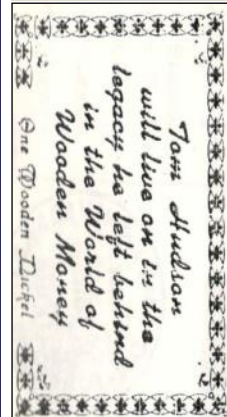 Tom Hudson
will live on in the
legacy he left behind
in the World of
Wooden Money
One Wooden Nickel